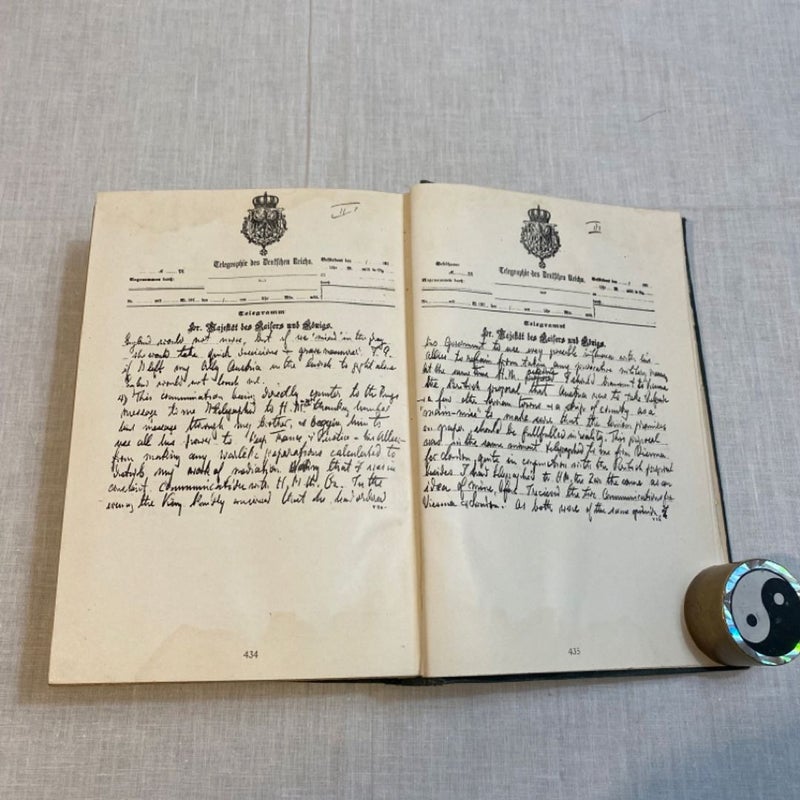 II
Telegraphie des Deutschen Reichs.
Telegramm
Sr. Majestät des Kaisers und Königs.
England would not move, but if we "mixed" in the fray
she would take quick decisions & grave measures. I.e.
if I left my Ally Austria in the lurch to fight alone
England would not touch me.
This communication being directly counter to the King's
message to me I telegraphed to H.M. thanking him for
his message through my brother, & begging him to
use all his power to keep France & Russia — his Allies —
from making any warlike preparations calculated to
disturb my work of mediation stating that I was in
constant communication with H.M. In the
evening the King kindly answered that he had ordered
434
III
Telegraphie des Deutschen Reichs.
Telegramm
Sr. Majestät des Kaisers und Königs.
his Government to use every possible influence with his
Allies to refrain from taking any provocative military measures
at the same time H.M. I should transmit to Vienna
the British proposal that Austria was to take Belgrade
& a few other Servian towns & a strip of country as a
"main-mise" to make sure that the Servian promises
on paper should be fulfilled in reality. This proposal
was in the same moment telegraphed to me from Vienna
for London, quite in conjunction with the British proposal
besides, I had telegraphed to H.M. the Czar the same as an
idea of mine, before I received the two communications from
Vienna & London. As both were of the same
435